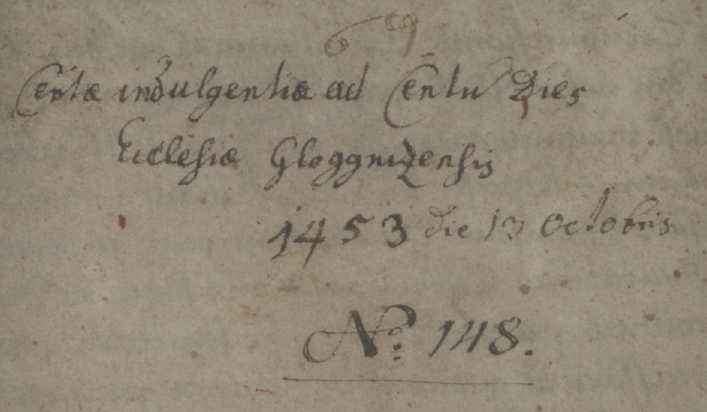 69
Certæ indulgentiæ ad Centũ Dies
Ecclesiæ Gloggnizensis
1453 die 13 Octobris
No: 148.